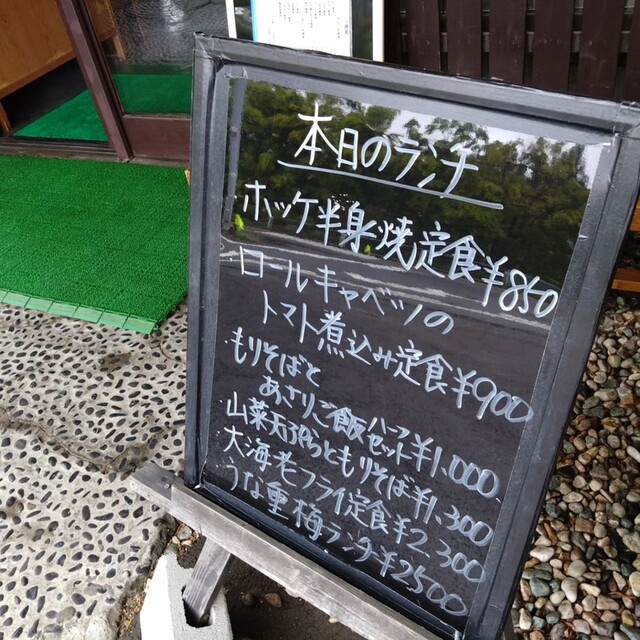 本日のランチ
ホッケ半身焼定食¥850
ロールキャベツの
トマト煮込み定食¥900
もりそばと
あさりご飯ハーフセット¥1,000
山菜天ぷらともりそば¥1,300
大海老フライ定食¥2,300
うな重梅ランチ¥2500